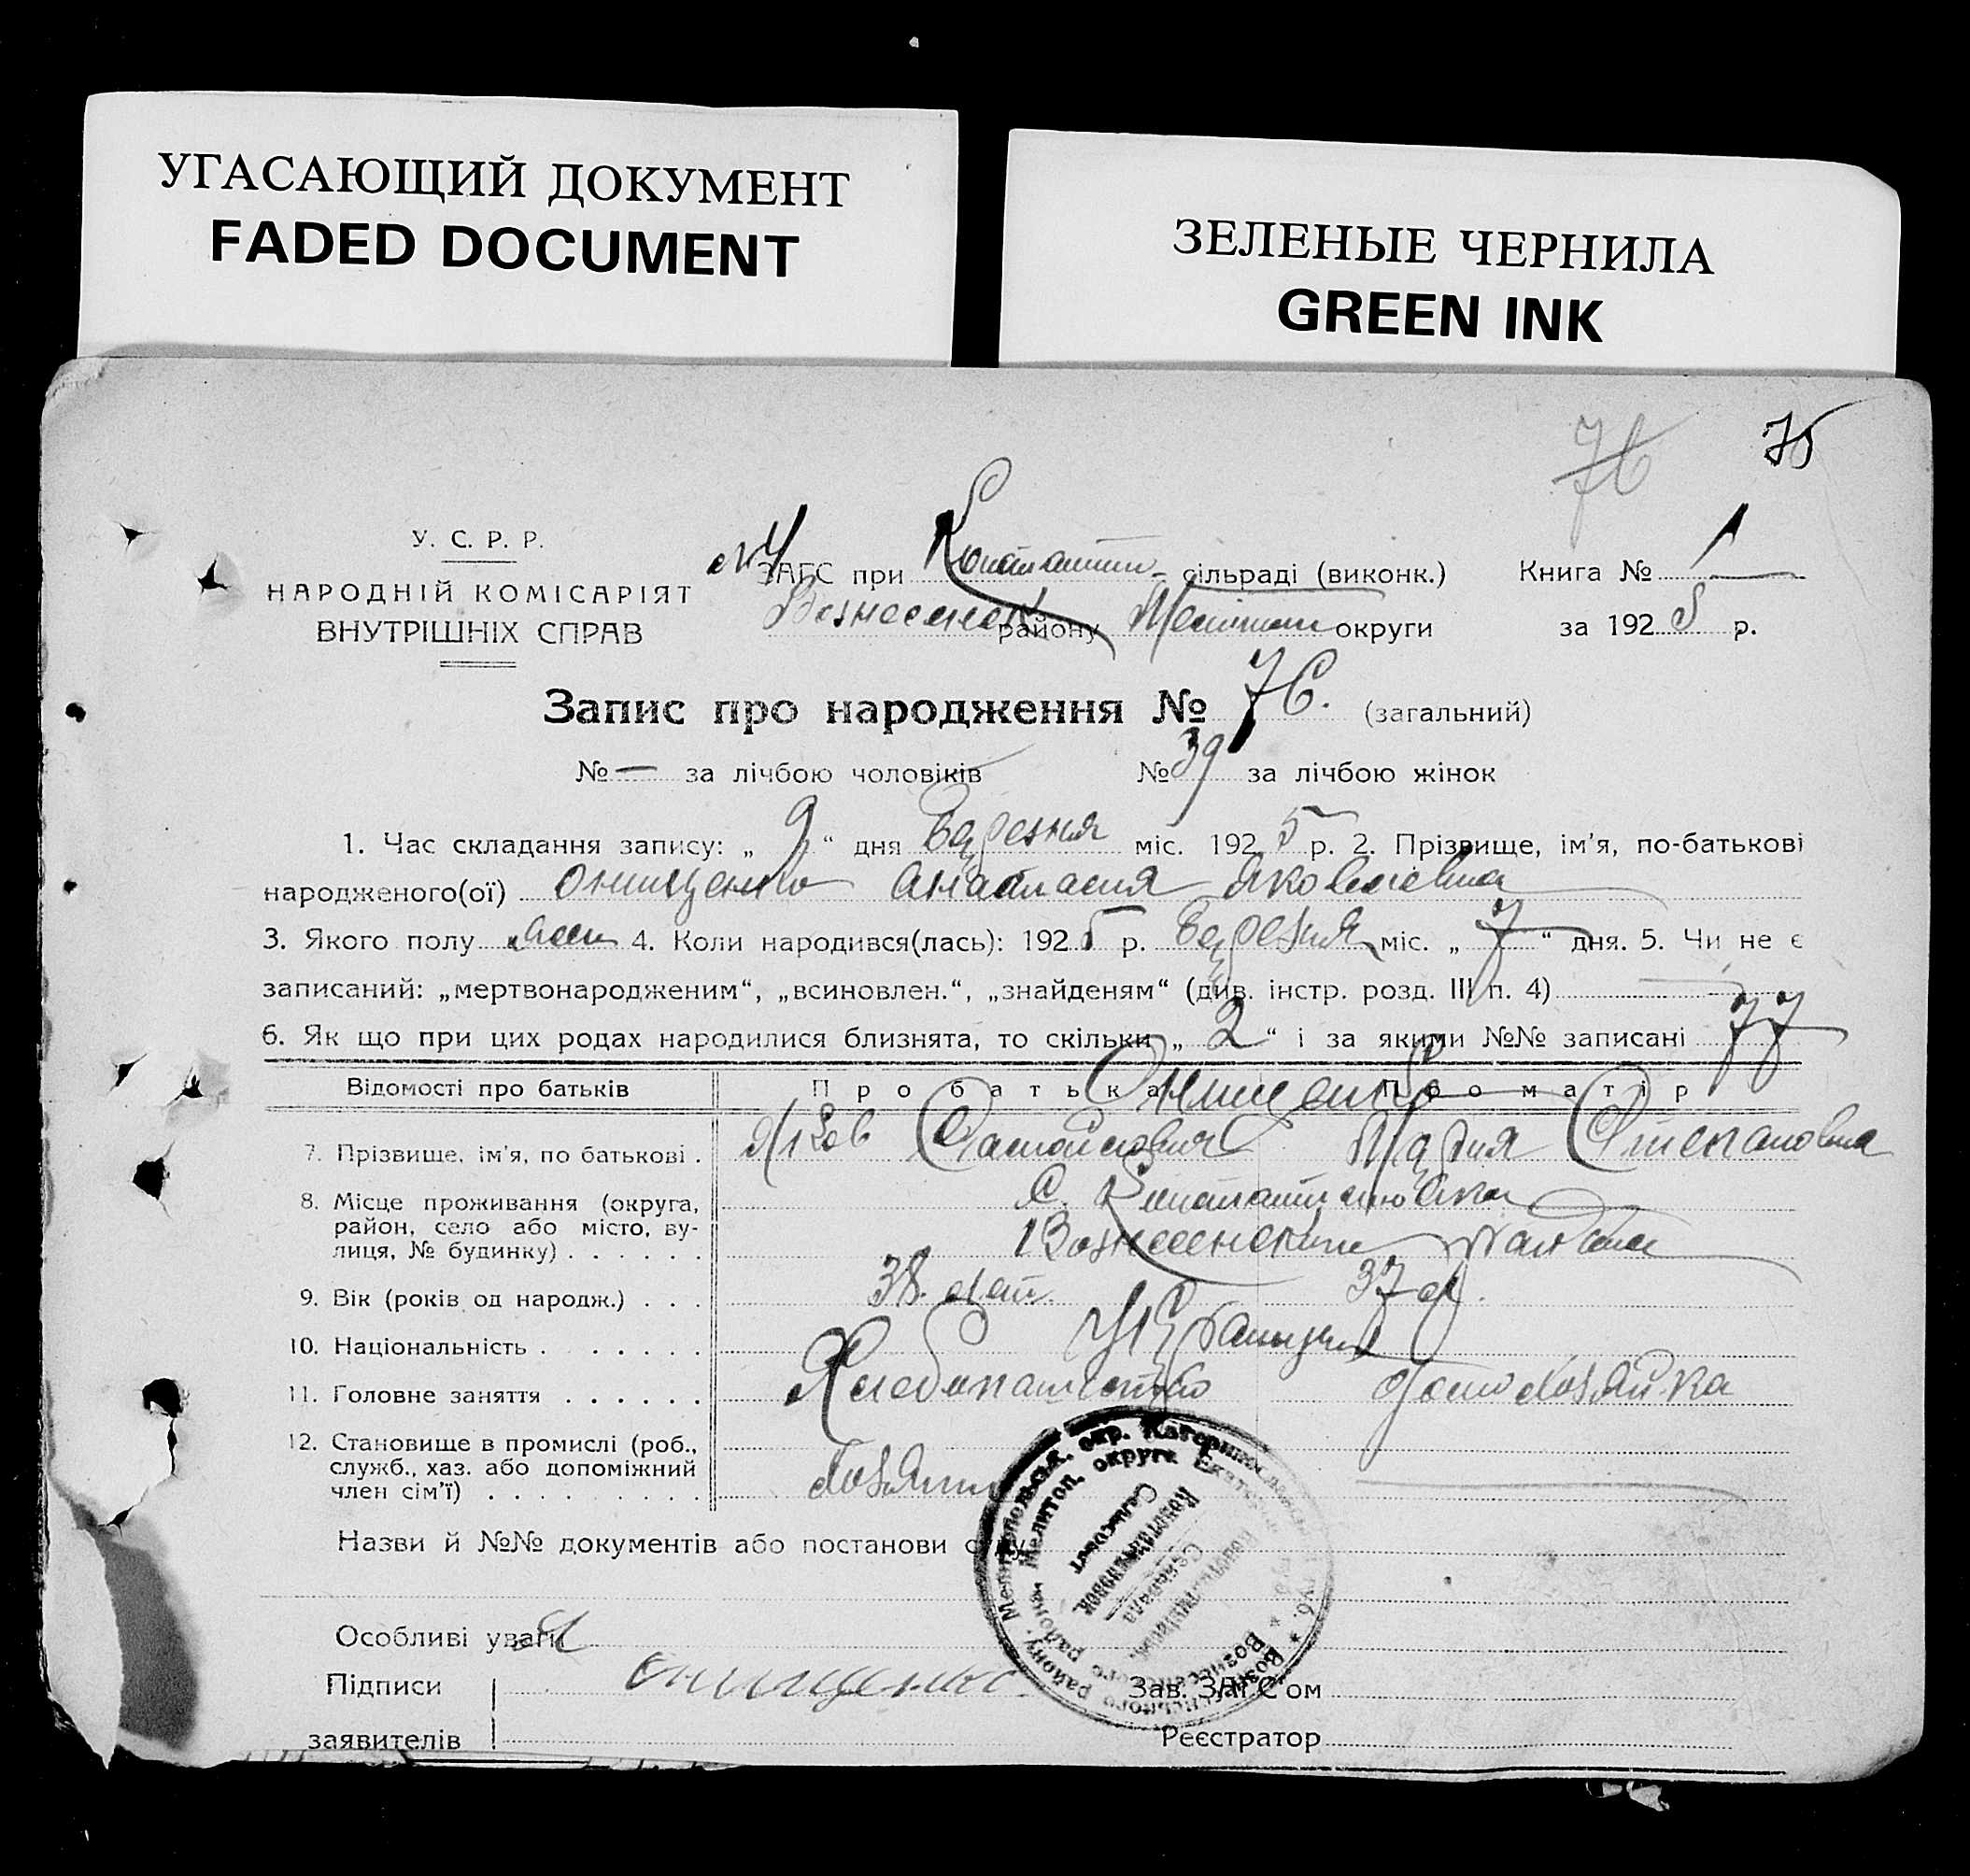 УГАСАЮЩИЙ ДОКУМЕНТ
FADED DOCUMENT
ЗЕЛЕНЫЕ ЧЕРНИЛА
GREEN INK
76 75
У. С. Р. Р.
НАРОДНІЙ КОМІСАРІЯТ
ВНУТРІШНІХ СПРАВ
ЗАГС при Константин- сільраді (виконк.) Книга № 1
Вознесенск району Мелитоп округи за 1925 р.
Запис про народження № 76. (загальний)
№ — за лічбою чоловіків № 39 за лічбою жінок
1. Час складання запису: „ 9 “ дня березня міс. 1925 р. 2. Прізвище, ім'я, по-батькові
народженого(ої) Онищенко Анастасия Яковлевна
3. Якого полу жен 4. Коли народився(лась): 1925 р. березня міс. „ 7 “ дня. 5. Чи не є
записаний: „мертвонародженим“, „всиновлен.“, „знайденям“ (див. інстр. розд. III п. 4)
6. Як що при цих родах народилися близнята, то скільки „ 2 “ і за якими №№ записані 77
Відомості про батьків Про батька Про матір
Онищенко
7. Прізвище, ім'я, по батькові . Яков Самойлович Мария Степановна
8. Місце проживання (округа, район, село або місто, ву-лиця, № будинку) . . . . . . С. Константиновка
Вознесенский
9. Вік (років од народж.) . . . 38 лет. 37 л.
10. Національність . . . . . . Украинцы
11. Головне заняття . . . . . . Хлебопашество Домохозяйка
12. Становище в промислі (роб., служб., хаз. або допоміжний член сім'ї) . . . . . . . . . Хозяин
Назви й №№ документів або постанови суду
Особливі уваги
Підписи Онищенко Зав. ЗАГС'ом
заявителів Реєстратор
Мелитоп. округа
Константиновск.
Сельсовет
Сельрада
Вознесенского района